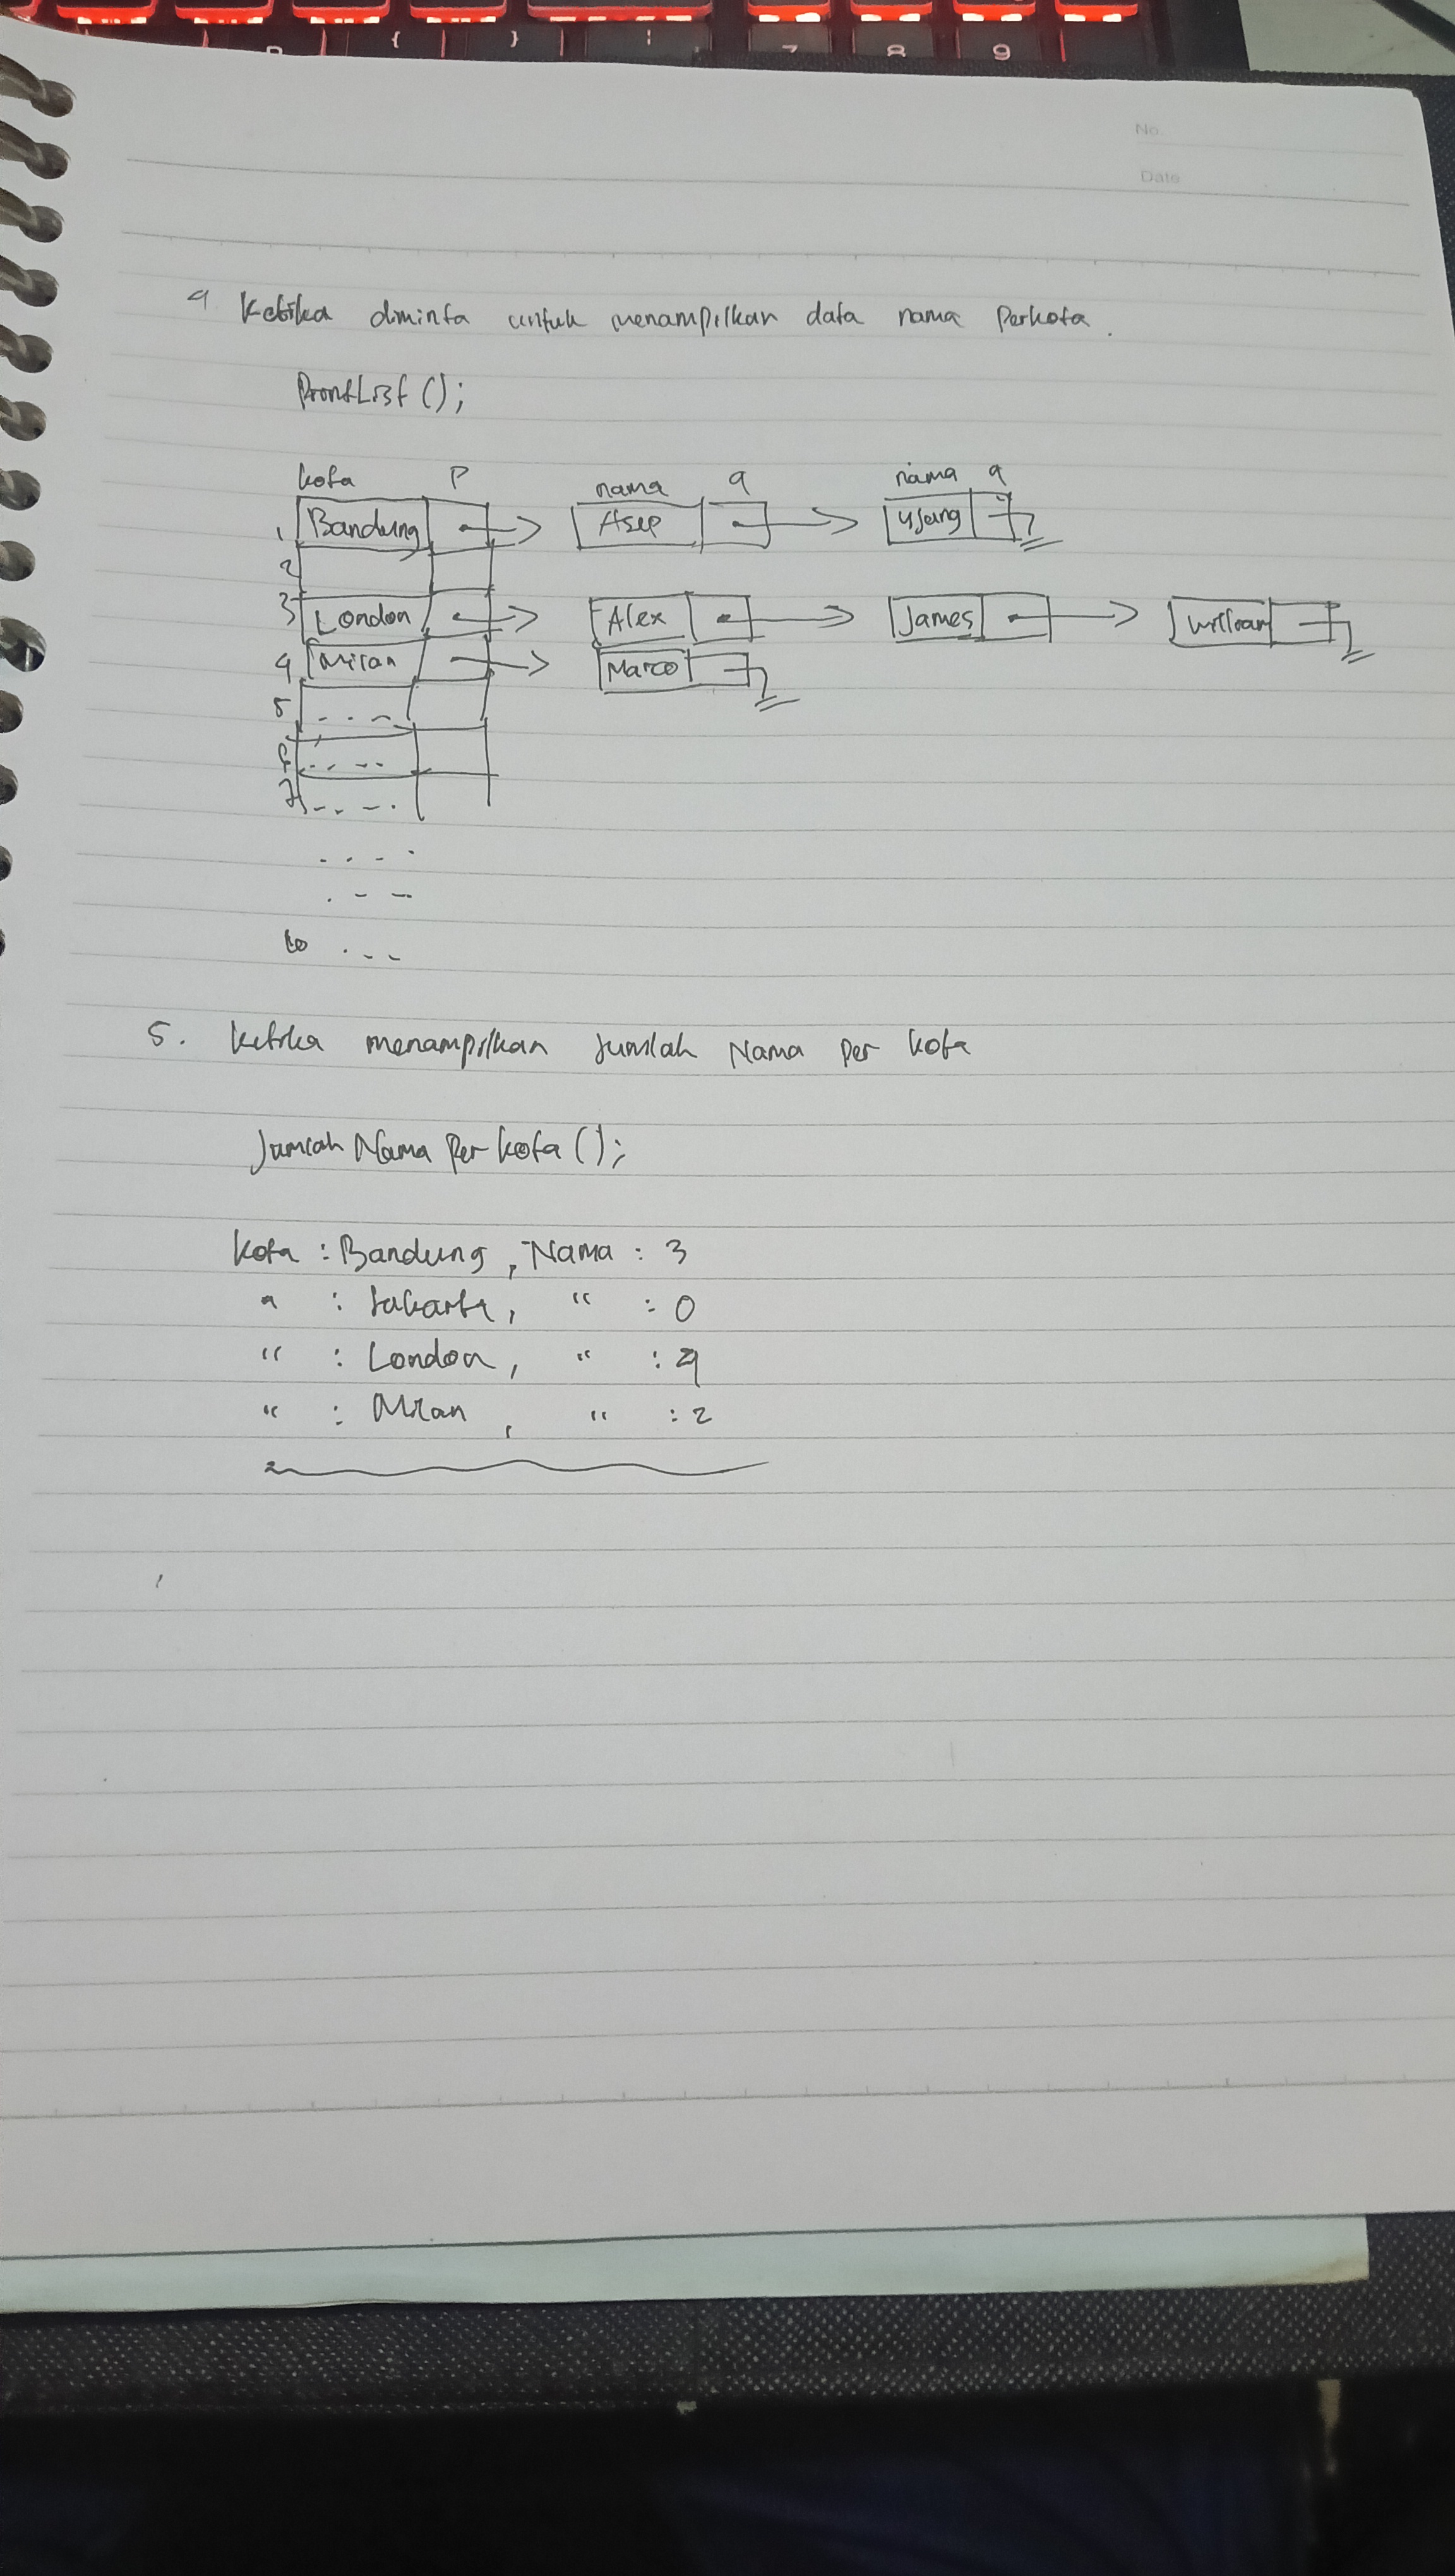 { } 7 8 9
No.
Date
4 Ketika diminta untuk menampilkan data nama Perkota.
PrintList();
kota P nama q nama q
1 Bandung Asep Ujang
2
3 London Alex James William
4 Milan Marco
5 - - - -
6 - - - -
7 - - - -
- - - -
- - -
10 - - -
5. Ketika menampilkan Jumlah Nama Per Kota
Jumlah Nama Per Kota();
Kota : Bandung, Nama : 3
" : Jakarta, " : 0
" : London, " : 4
" : Milan, " : 2